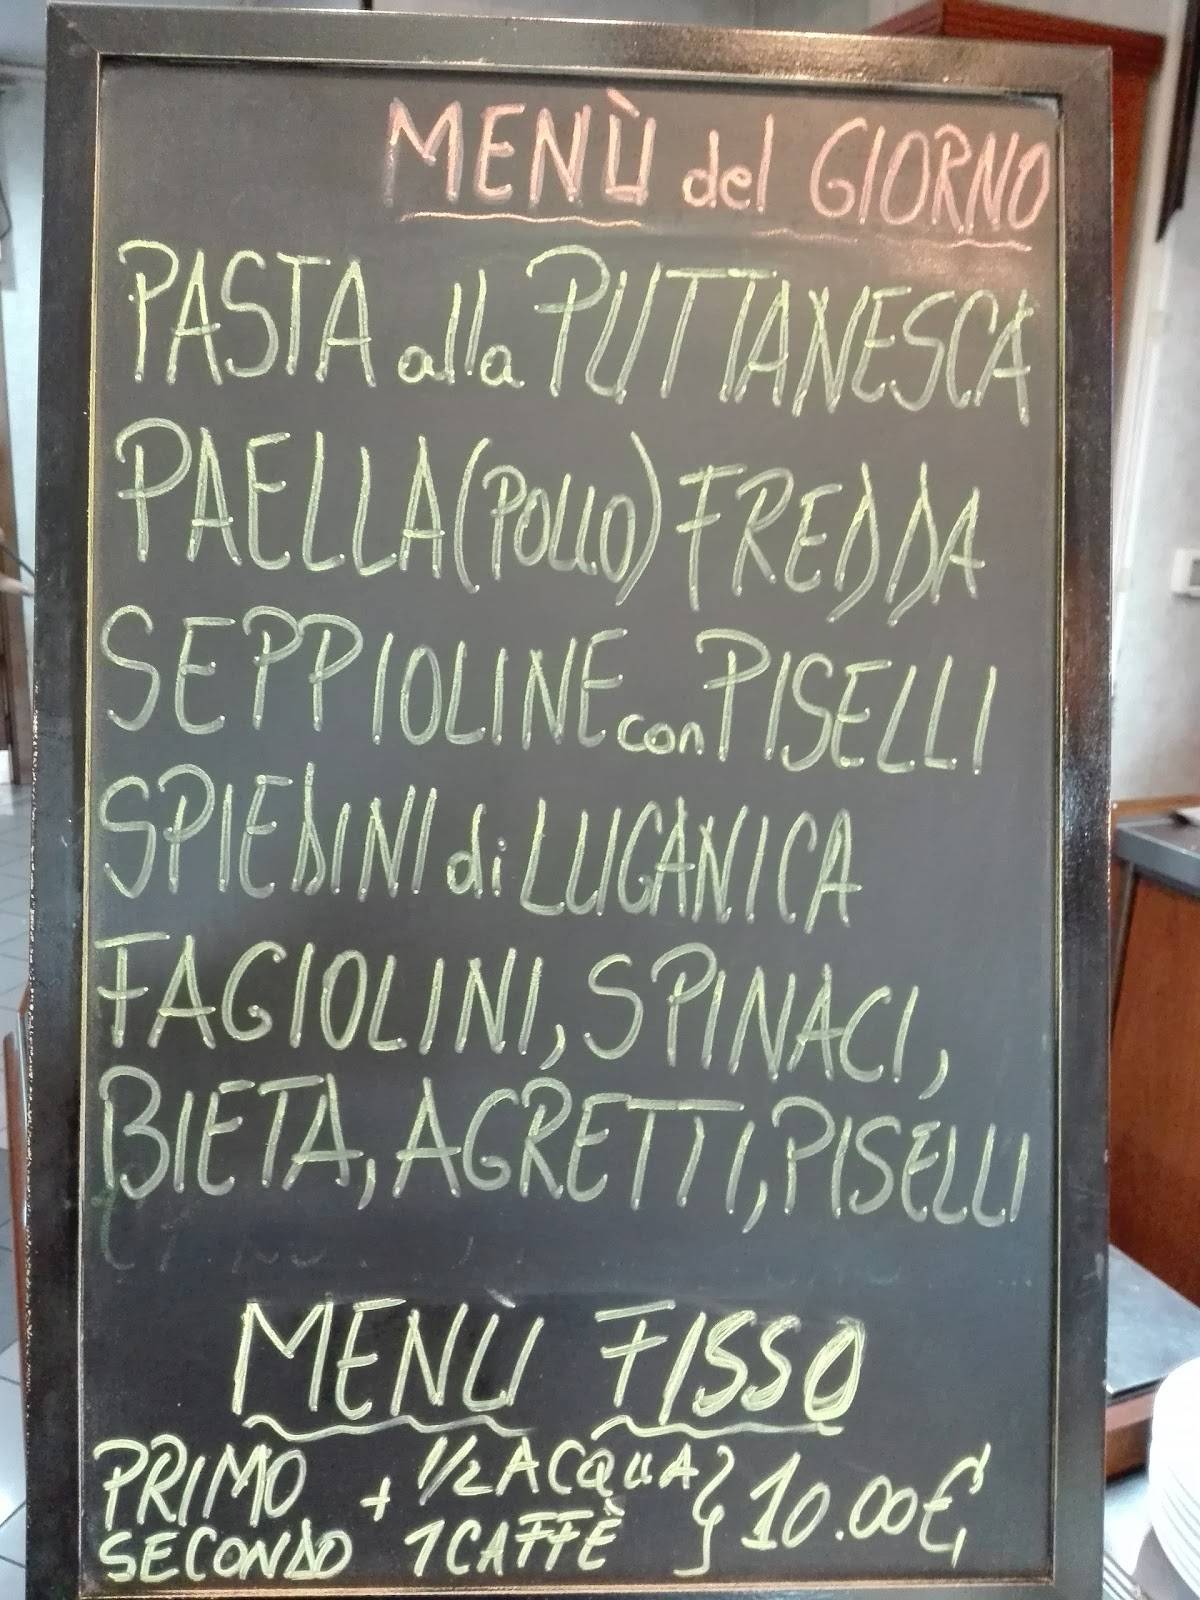 MENÙ del GIORNO
PASTA alla PUTTANESCA
PAELLA (POLLO) FREDDA
SEPPIOLINE con PISELLI
SPIEDINI di LUCANICA
FAGIOLINI, SPINACI,
BIETA, AGRETTI, PISELLI
MENÙ FISSO
PRIMO + 1/2 ACQUA } 10.00€
SECONDO 1 CAFFÈ